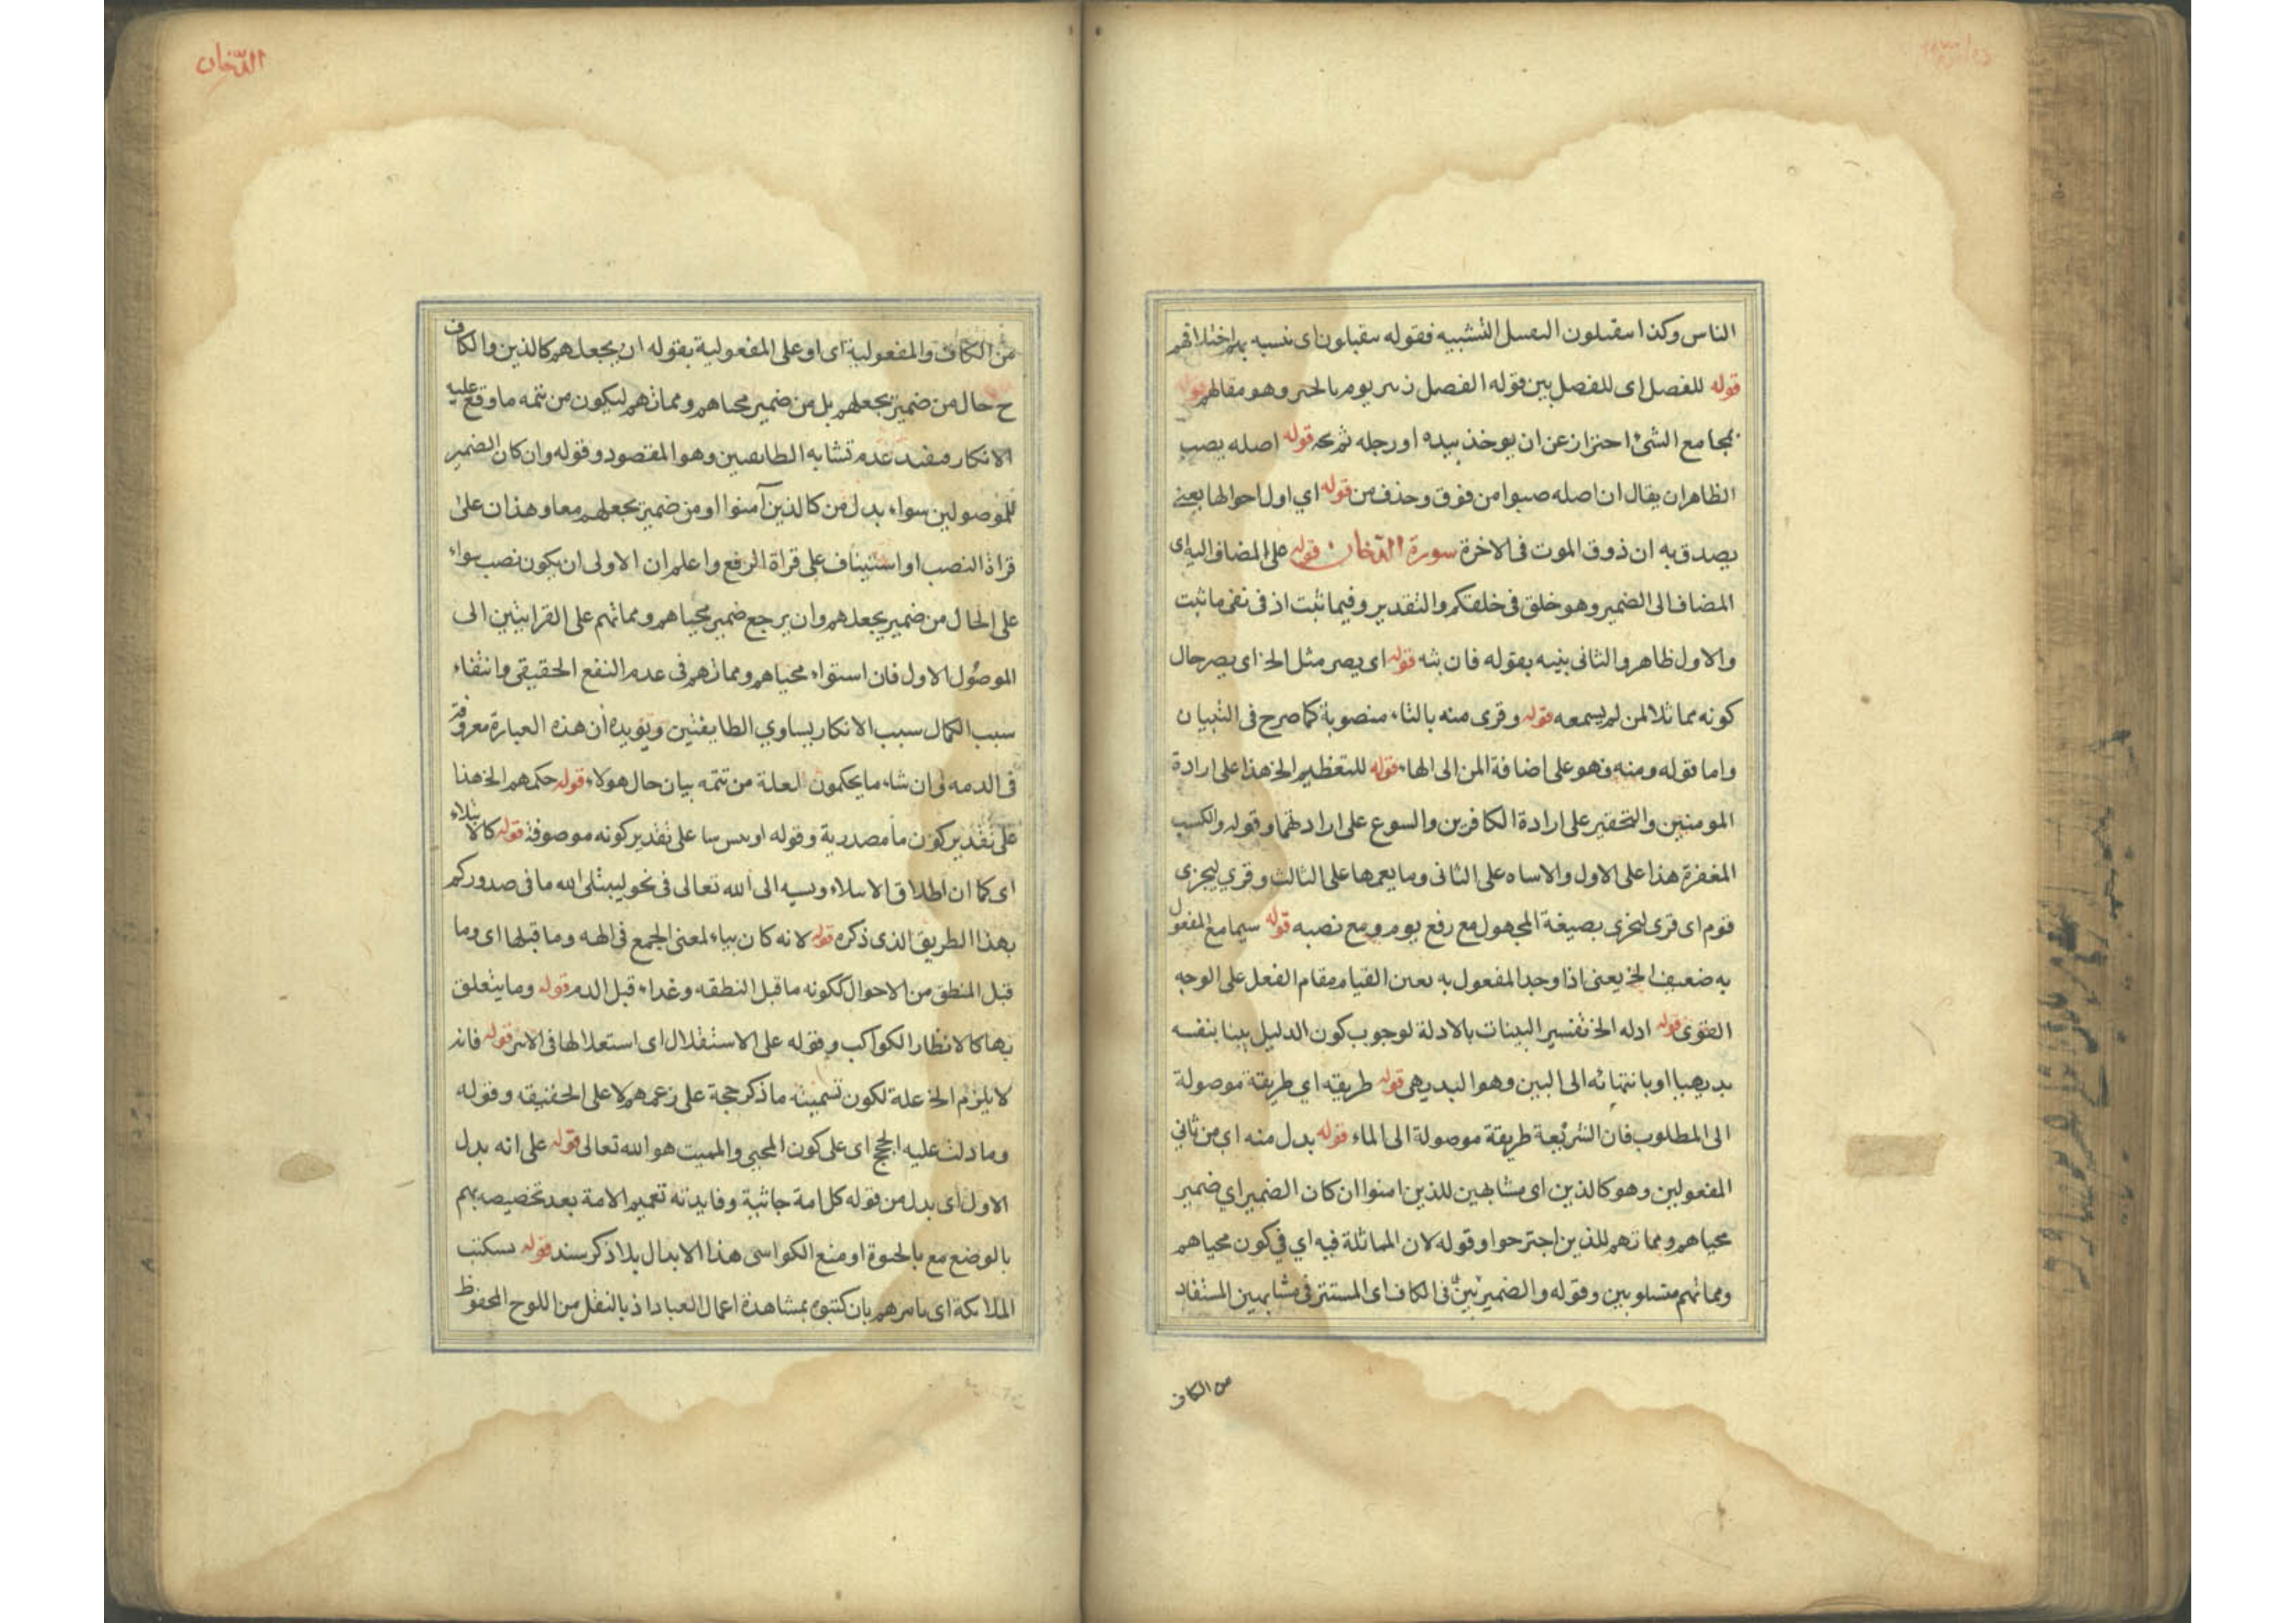 الناس وكذا سقبلون التشبيه فقوله سقبلون اى
قوله للفصل اى للفصل بين قوله الفصل يوم وهو مقالهم قوله
بمجامع الشئ احتراز عن ان يوخذ بيده او رجله ثم قوله اصله يصب
الظاهر ان يقال ان اصله صبوا من فوق وحذف من قوله اي اول احوالها يعنى
يصدق به ان ذوق الموت فى الاخرة سورة الدخان قوله على المضاف اليه اى
المضاف الى الضمير وهو خلق فى خلقكم والتقدير وفيما ثبت اذ فى نفى ما ثبت
والاول ظاهر والثانى بينه بقوله فان بثه قوله اى يصر مثل الخ اى يصر حال
كونه مماثلا لمن لم يسمعه قوله وقرى منه بالتاء منصوبة كما صرح فى التبيان
واما قوله ومنه فهو على اضافة المن الى الهاء قوله للتعظيم الخ هذا على ارادة
المومنين والتحقير على ارادة الكافرين والسوع على ارادتهما وقوله والكسب
المغفرة هذا على الاول والاساه على الثانى وما يعمها على الثالث وقرى ليجزى
قوم اى قرى ليجزى بصيغة المجهول مع رفع يوم ومع نصبه قوله سيما مع المفعول
به ضعيف الخ يعنى اذا وجد المفعول به تعين القيام مقام الفعل على الوجه
القوى قوله ادله الخ تفسير البينات بالادلة لوجوب كون الدليل بينا بنفسه
بديهيا او بانتهائه الى البين وهو البديهى قوله طريقه اي طريقة موصولة
الى المطلوب فان الشريعة طريقة موصولة الى الماء قوله بدل منه اي من ثاني
المفعولين وهو كالذين اى مشابهين للذين امنوا ان كان الضمير اي ضمير
محياهم ومماتهم للذين اجترحوا وقوله لان المماثلة فيه اي في كون محياهم
ومماتهم متساويين وقوله والضميرين فى الكاف اى المستتر فى مشابهين المستفاد
من الكاف
الدخان
من الكاف والمفعولية اى او على المفعولية بقوله ان يجعلهم كالذين والكاف
ح حال من ضمير يجعلهم بل من ضمير محياهم ومماتهم ليكون من تتمه ما وقع عليه
الانكار فيفيد عدم تشابه الطايفتين وهو المقصود وقوله وان كان الضمير
للموصولين سواء بدل من كالذين آمنوا او من ضمير يجعلهم معا وهذان على
قراة النصب او استيناف على قراة الرفع واعلم ان الاولى ان يكون نصب سواء
على الحال من ضمير يجعلهم وان يرجع ضمير محياهم ومماتهم على القراتين الى
الموصول الاول فان استواء محياهم ومماتهم فى عدم النفع الحقيقى وانتفاء
سبب الكمال سبب الانكار يساوي الطايفتين ويؤيده ان هذه العبارة معروفة
فى الدمه وان شاء ما يحكمون لعلة من تتمه بيان حال هولاء قوله حكمهم الخ هذا
على تقدير كون ما مصدرية وقوله او بس سا على تقدير كونه موصوفة قوله كالابتلاء
اى كما ان اطلاق الابتلاء ونسبه الى الله تعالى فى نحو ليبتلى الله ما فى صدوركم
بهذا الطريق الذى ذكره قوله لانه كان بياء لمعنى الجمع فى الهه وما قبلها اى وما
قبل المنطق من الاحوال ككونه ما قبل النطقه وغداء قبل الدم قوله وما يتعلق
بها كالانظار الكواكب وقوله على الاستقلال اى استعلالها فى الاثر قوله فانه
لا يلزم الخ علة لكون تسميته ما ذكر حجة على زعمهم لا على الحقيقه وقوله
وما دلت عليه الحجج اى على كون المحيي والمميت هو الله تعالى قوله على انه بدل
الاول اى بدل من قوله كل امة جاثية وفايدته تعميم الامة بعد تخصيصه بهم
بالوضع مع بالحسوة او منع الكواسى هذا الابدال بلا ذكر سند قوله نسكتب
الملائكة اى نامرهم بان كتبوه بمشاهدة اعمال العباد اذ بالنقل من اللوح المحفوظ